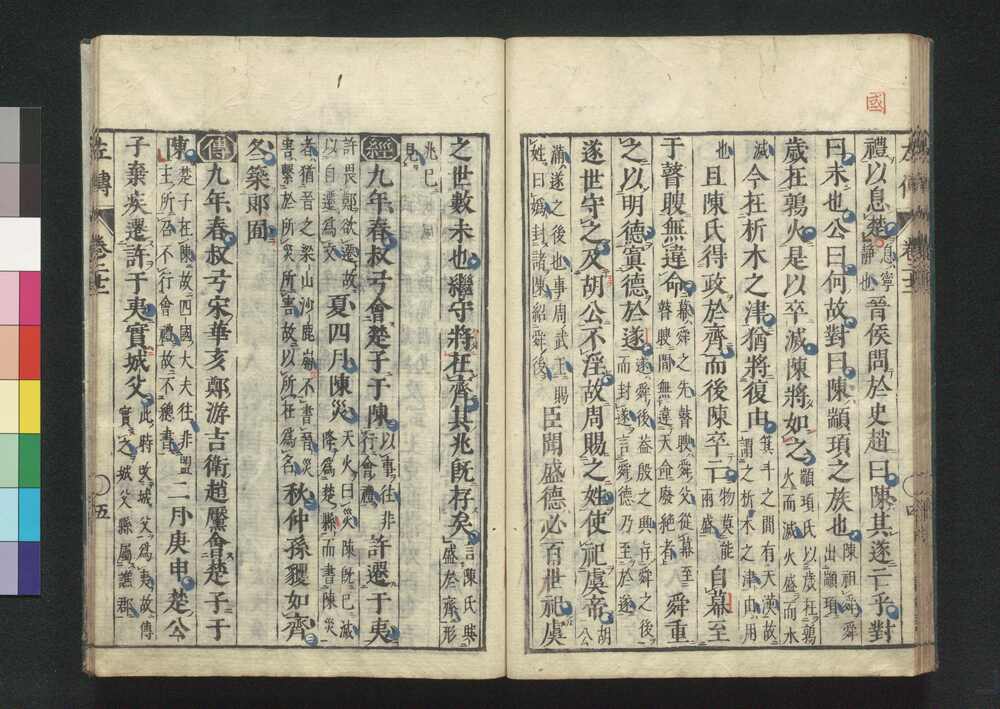 國
禮以息楚息寧靜也晉侯問於史趙曰陳其遂亡乎對
曰未也公曰何故對曰陳顓頊之族也陳祖舜舜出顓頊
歲在鶉火是以卒滅陳將如之顓頊氏以歲在鶉火而滅火盛而水
滅今在析木之津猶將復由箕斗之間有天漢故謂之析木之津由用
也且陳氏得政於齊而後陳卒亡物莫能兩盛自幕至
于瞽瞍無違命幕舜之先瞽瞍舜父從幕至瞽瞍間無違天命廢絕者舜重
之以明德寘德於遂遂舜後蓋殷之興存舜之後而封遂言舜德乃至於遂
遂世守之及胡公不淫故周賜之姓使祀虞帝胡公
滿遂之後也事周武王賜姓曰媯封諸陳紹舜後臣聞盛德必百世祀虞
左傳 卷二十二 四
之世數未也繼守將在齊其兆旣存矣言陳氏興盛於齊形
兆已見
經九年春叔弓會楚子于陳以事往非行會禮許遷于夷
許畏鄭欲遷故以自遷爲文夏四月陳災天火曰災陳旣已滅降爲楚縣而書陳災
者猶晉之梁山沙鹿崩不書晉災害繫於所災所害故以所在爲名秋仲孫貜如齊
冬築郎囿
傳九年春叔弓宋華亥鄭游吉衛趙黶會楚子于
陳楚子在陳故四國大夫往非盟主所召不行會禮故不總書二月庚申楚公
子棄疾遷許于夷實城父此時改城父爲夷故傳實之城父縣屬譙郡
左傳 卷二十二 五